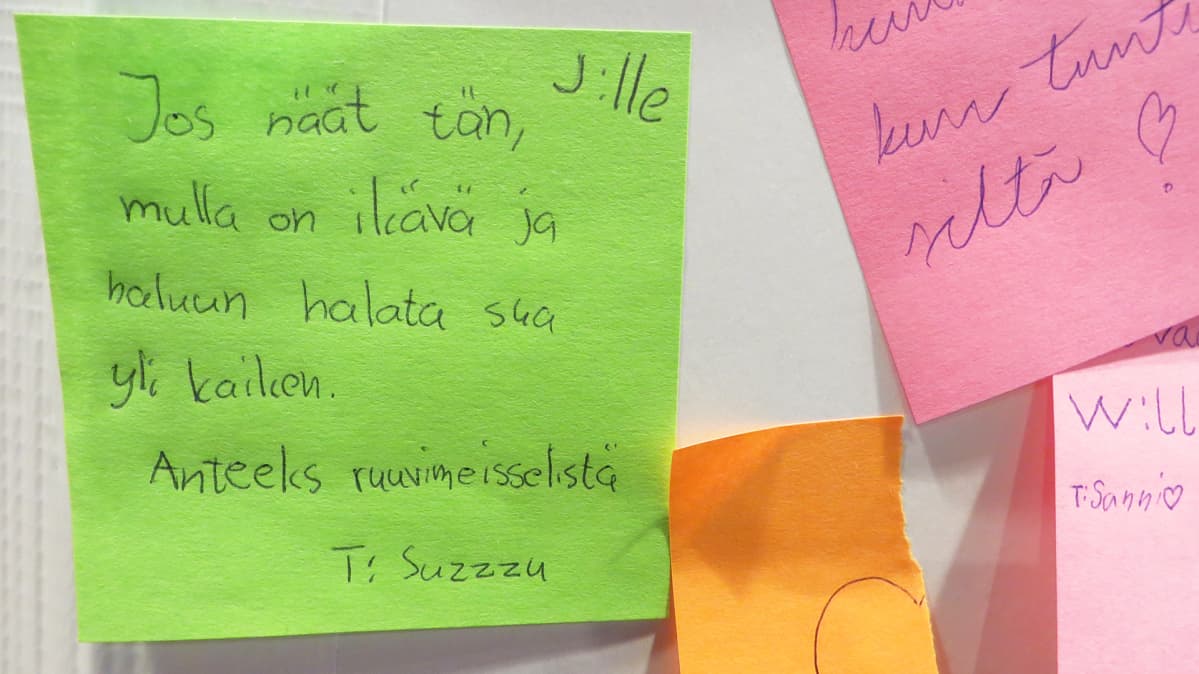 J:lle
Jos näät tän,
mulla on ikävä ja
haluun halata sua
yli kaiken.
Anteeks ruuvimeisselistä
T: Suzzzu
kun
siltä
Will
T: Sanni♡